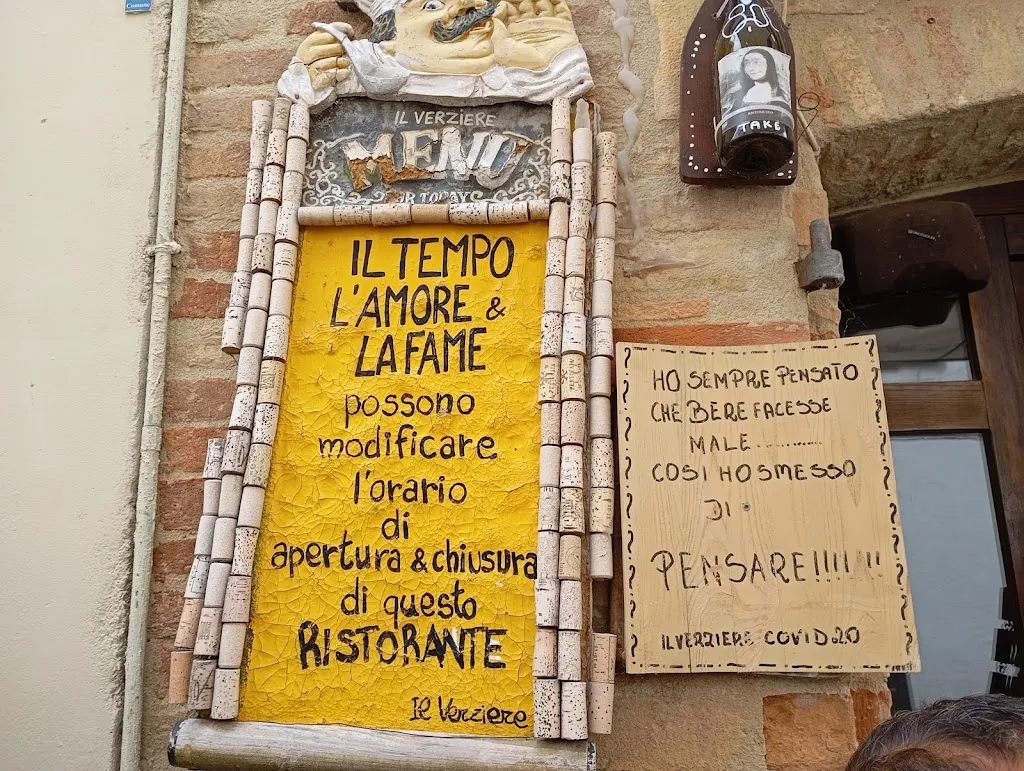 Comune
IL VERZIERE
MENU
OR TODAY
IL TEMPO
L'AMORE &
LA FAME
possono
modificare
l'orario
di
apertura & chiusura
di questo
RISTORANTE
Il Verziere
TAKE
HO SEMPRE PENSATO
CHE BERE FACESSE
MALE...........
COSI HO SMESSO
DI
PENSARE!!!!!!!
IL VERZIERE COVID 20